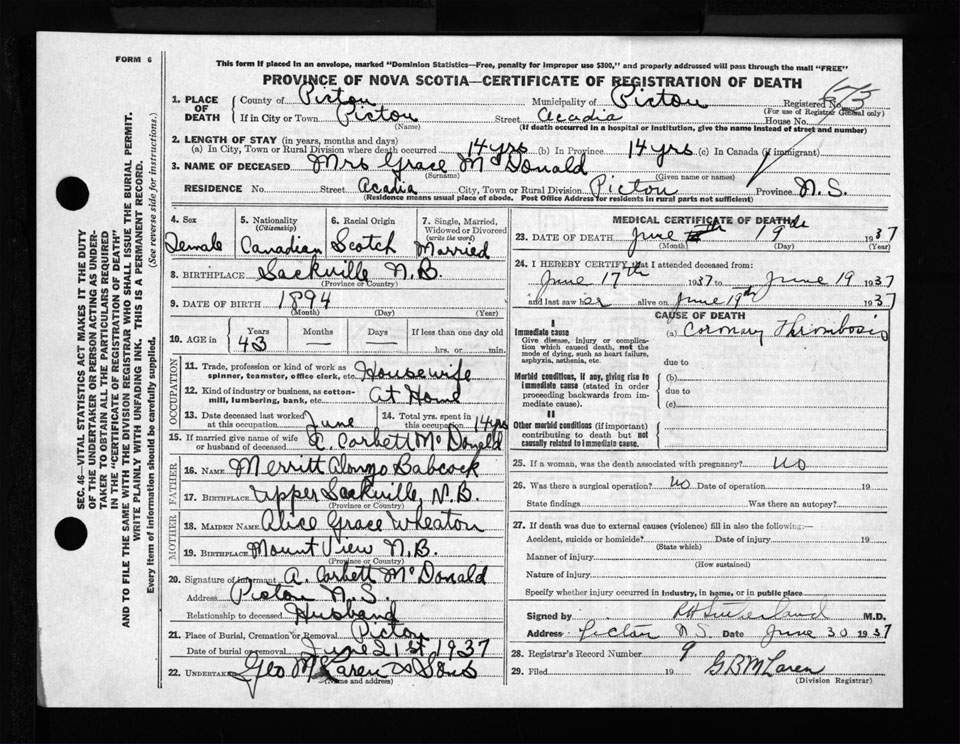 FORM 6
This form if placed in an envelope, marked "Dominion Statistics—Free, penalty for improper use $300," and properly addressed will pass through the mail "FREE"
PROVINCE OF NOVA SCOTIA—CERTIFICATE OF REGISTRATION OF DEATH
SEC. 46—VITAL STATISTICS ACT MAKES IT THE DUTY
OF THE UNDERTAKER OR PERSON ACTING AS UNDER-
TAKER TO OBTAIN ALL THE PARTICULARS REQUIRED
IN THE "CERTIFICATE OF REGISTRATION OF DEATH"
AND TO FILE THE SAME WITH THE DIVISION REGISTRAR WHO SHALL ISSUE THE BURIAL PERMIT.
WRITE PLAINLY WITH UNFADING INK. THIS IS A PERMANENT RECORD.
Every item of information should be carefully supplied. (See reverse side for instructions.)
1. PLACE OF DEATH County of Pictou Municipality of Pictou Registered No.
(For use of Registrar General only)
If in City or Town Pictou Street Acadia House No.
(Name) (If death occurred in a hospital or institution, give the name instead of street and number)
2. LENGTH OF STAY (in years, months and days)
(a) In City, Town or Rural Division where death occurred 14 yrs (b) In Province 14 yrs (c) In Canada (if immigrant)
3. NAME OF DECEASED Mrs Grace McDonald
(Surname) (Given name or names)
RESIDENCE No. Street Acadia City, Town or Rural Division Pictou Province N.S.
(Residence means usual place of abode. Post Office Address for residents in rural parts not sufficient)
4. Sex Female
5. Nationality (Citizenship) Canadian
6. Racial Origin Scotch
7. Single, Married, Widowed or Divorced (write the word) Married
8. BIRTHPLACE Sackville N.B.
(Province or Country)
9. DATE OF BIRTH 1894
(Month) (Day) (Year)
10. AGE in Years 43 Months — Days — If less than one day old hrs. or min.
OCCUPATION
11. Trade, profession or kind of work as spinner, teamster, office clerk, etc. Housewife
12. Kind of industry or business, as cotton-mill, lumbering, bank, etc. At Home
13. Date deceased last worked at this occupation June
14. Total yrs. spent in this occupation 14 yrs
15. If married give name of wife or husband of deceased A. Corbett McDonald
FATHER
16. NAME Merritt Alongo Babcock
17. BIRTHPLACE Upper Sackville, N.B.
(Province or Country)
MOTHER
18. MAIDEN NAME Alice Grace Wheaton
19. BIRTHPLACE Mount View N.B.
(Province or Country)
20. Signature of informant A. Corbett McDonald
Address Pictou N.S.
Relationship to deceased Husband
21. Place of Burial, Cremation or Removal Pictou
Date of burial or removal June 21st 1937
22. UNDERTAKER Geo McLaren & Sons
(Name and address)
MEDICAL CERTIFICATE OF DEATH
23. DATE OF DEATH June 19th 1937
(Month) (Day) (Year)
24. I HEREBY CERTIFY that I attended deceased from:
June 17th 1937 to June 19 1937
and last saw her alive on June 19th 1937
CAUSE OF DEATH
I
Immediate cause (a) Coronary Thrombosis
Give disease, injury or complica-
tion which caused death, not the
mode of dying, such as heart failure,
asphyxia, asthenia, etc.
due to
Morbid conditions, if any, giving rise to
immediate cause (stated in order
proceeding backwards from im-
mediate cause).
(b)
due to
(c)
II
Other morbid conditions (if important)
contributing to death but not
causally related to immediate cause.
25. If a woman, was the death associated with pregnancy? no
26. Was there a surgical operation? no Date of operation 19
State findings Was there an autopsy?
27. If death was due to external causes (violence) fill in also the following:—
Accident, suicide or homicide? Date of injury 19
(State which)
Manner of injury
(How sustained)
Nature of injury
Specify whether injury occurred in Industry, in home, or in public place
Signed by RH Sutherland M.D.
Address Pictou N.S. Date June 30 1937
28. Registrar's Record Number 9
29. Filed 19 G B McLaren
(Division Registrar)